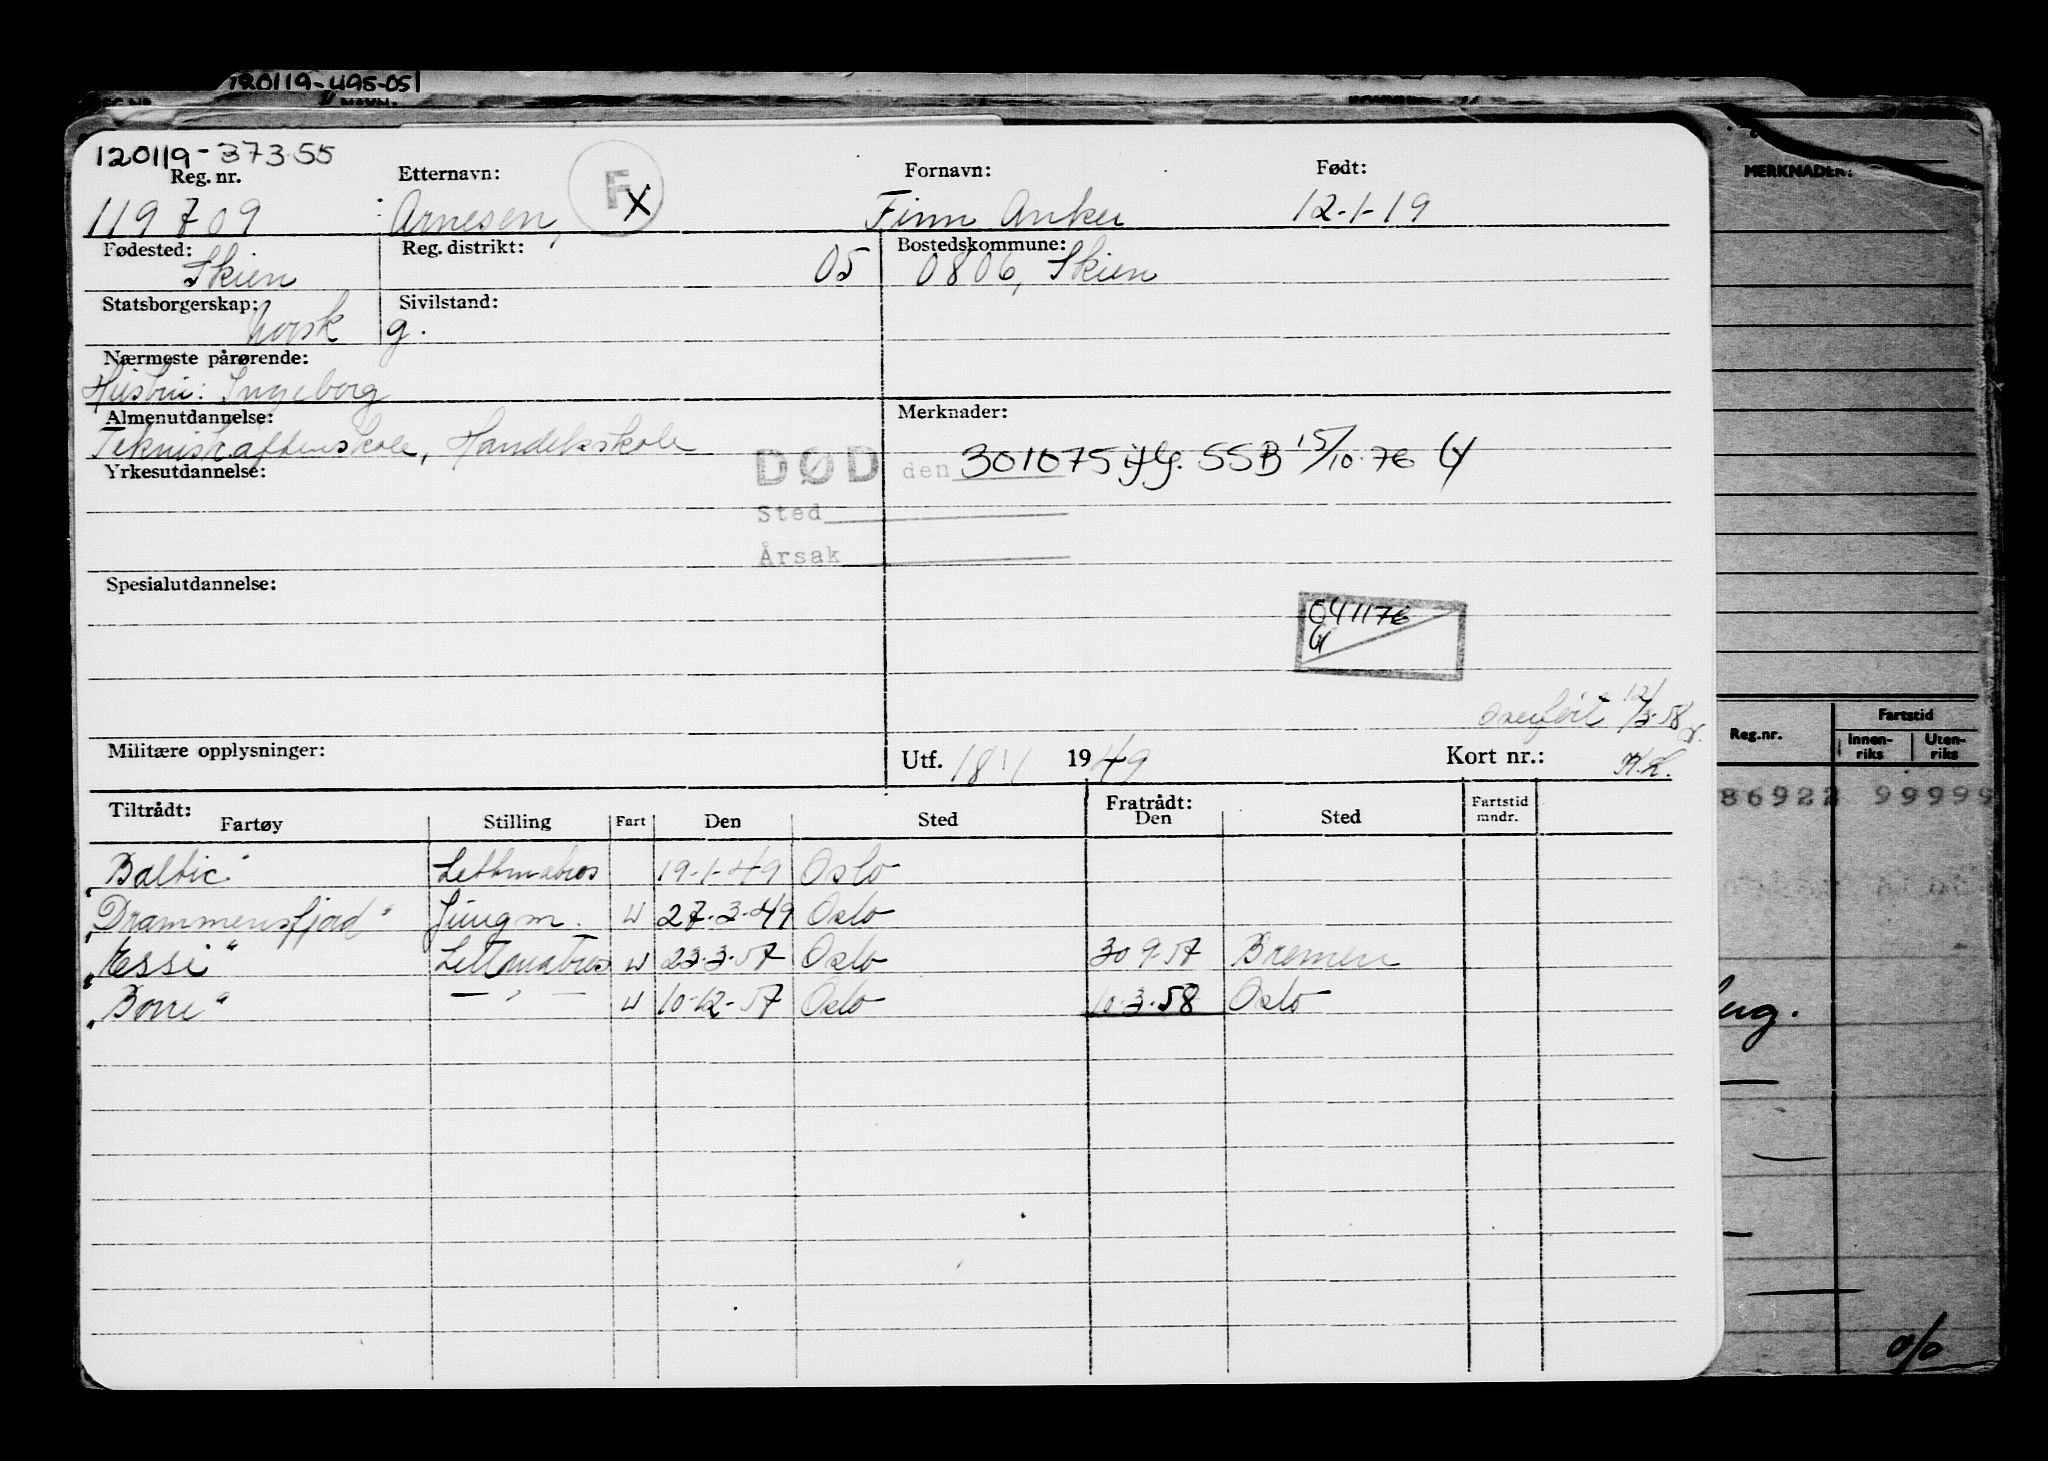 120119-495-05
120119-37355
Reg. nr. Etternavn: F X Fornavn: Født:
119709 Arnesen, Finn Anker 12-1-19
Fødested: Reg. distrikt: Bostedskommune:
Skien 05 0806, Skien
Statsborgerskap: Sivilstand:
Norsk g.
Nærmeste pårørende:
Hustru: Ingeborg
Almenutdannelse: Merknader:
Teknisk aftenskole, Handelsskole
DØD den 301075 SSB 15/10.76
Yrkesutdannelse:
Sted
Årsak
Spesialutdannelse:
041176
overført 12/3.58
Militære opplysninger: Utf. 18/1 1949 Kort nr.: K.L.
Tiltrådt: Fratrådt:
Fartøy Stilling Fart Den Sted Den Sted Fartstid mndr.
"Baltic" Lettmatros 19-1-49 Oslo
"Drammensfjord" Jungm. U 27-3-49 Oslo
"Essi" Lettmatros U 23-3-57 Oslo 30 9-57 Bremen
"Borre" — " — U 10-12-57 Oslo 10-3-58 Oslo
MERKNADER:
Reg.nr. Fartstid
Innen-riks Uten-riks
99999
o/o